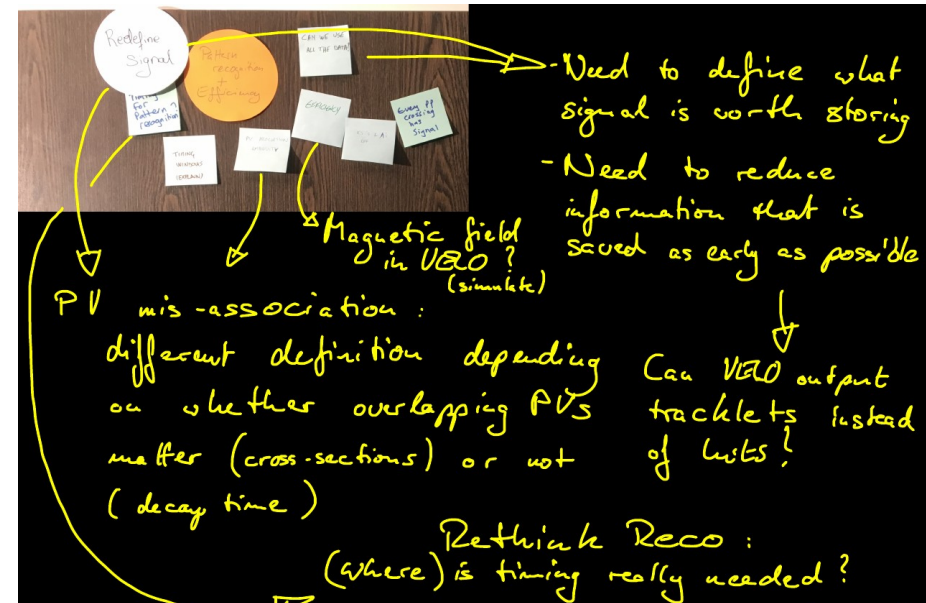 Redefine
Signal
Pattern
recognition
+
Efficiency
CAN WE USE
ALL THE DATA?
Timing
For
Pattern ?
recognition
EFFICIENCY
Every PP
crossing
has
Signal
TIMING
- Need to define what
signal is worth storing
- Need to reduce
information that is
saved as early as possible
Magnetic field
in VELO ?
(simulate)
PV mis-association :
different definition depending
on whether overlapping PVs
matter (cross-sections) or not
(decay time)
Can VELO output
tracklets instead
of hits ?
Rethink Reco :
(where) is timing really needed ?